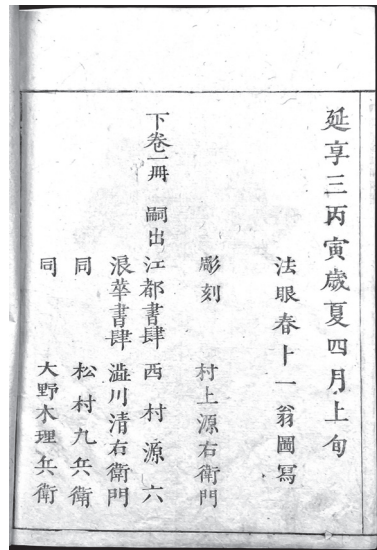 延享三丙寅歳夏四月上旬
法眼春卜一翁圖寫
彫刻 村上源右衛門
下巻一冊 嗣出 江都書肆 西村源六
浪華書肆 澁川清右衛門
同 松村九兵衛
同 大野木理兵衛